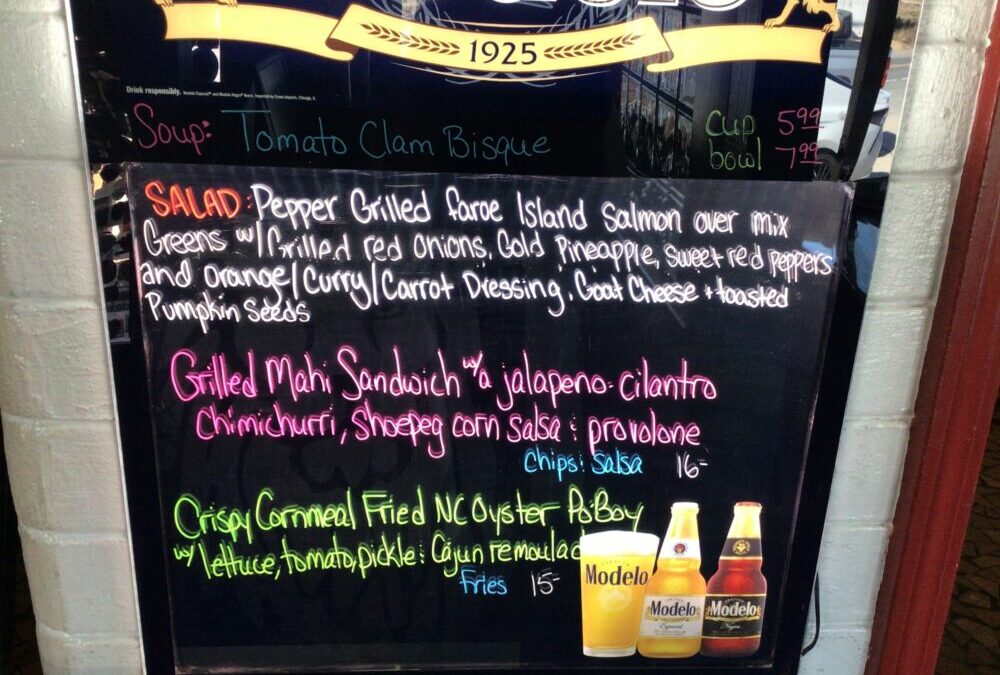 1925
Drink responsibly.
Soup: Tomato Clam Bisque
Cup 5.99
bowl 7.99
SALAD: Pepper Grilled Faroe Island Salmon over mix
Greens w/ Grilled red onions, Gold Pineapple, Sweet red peppers
and orange/Curry/Carrot Dressing, Goat Cheese + toasted
Pumpkin Seeds
Grilled Mahi Sandwich w/a jalapeno-cilantro
Chimichurri, Shoepeg corn salsa & provolone
Chips & Salsa 16-
Crispy Cornmeal Fried NC Oyster Po'Boy
w/ lettuce, tomato, pickle & Cajun remoulad
Fries 15-
Modelo
Modelo
Especial
Modelo
Negra